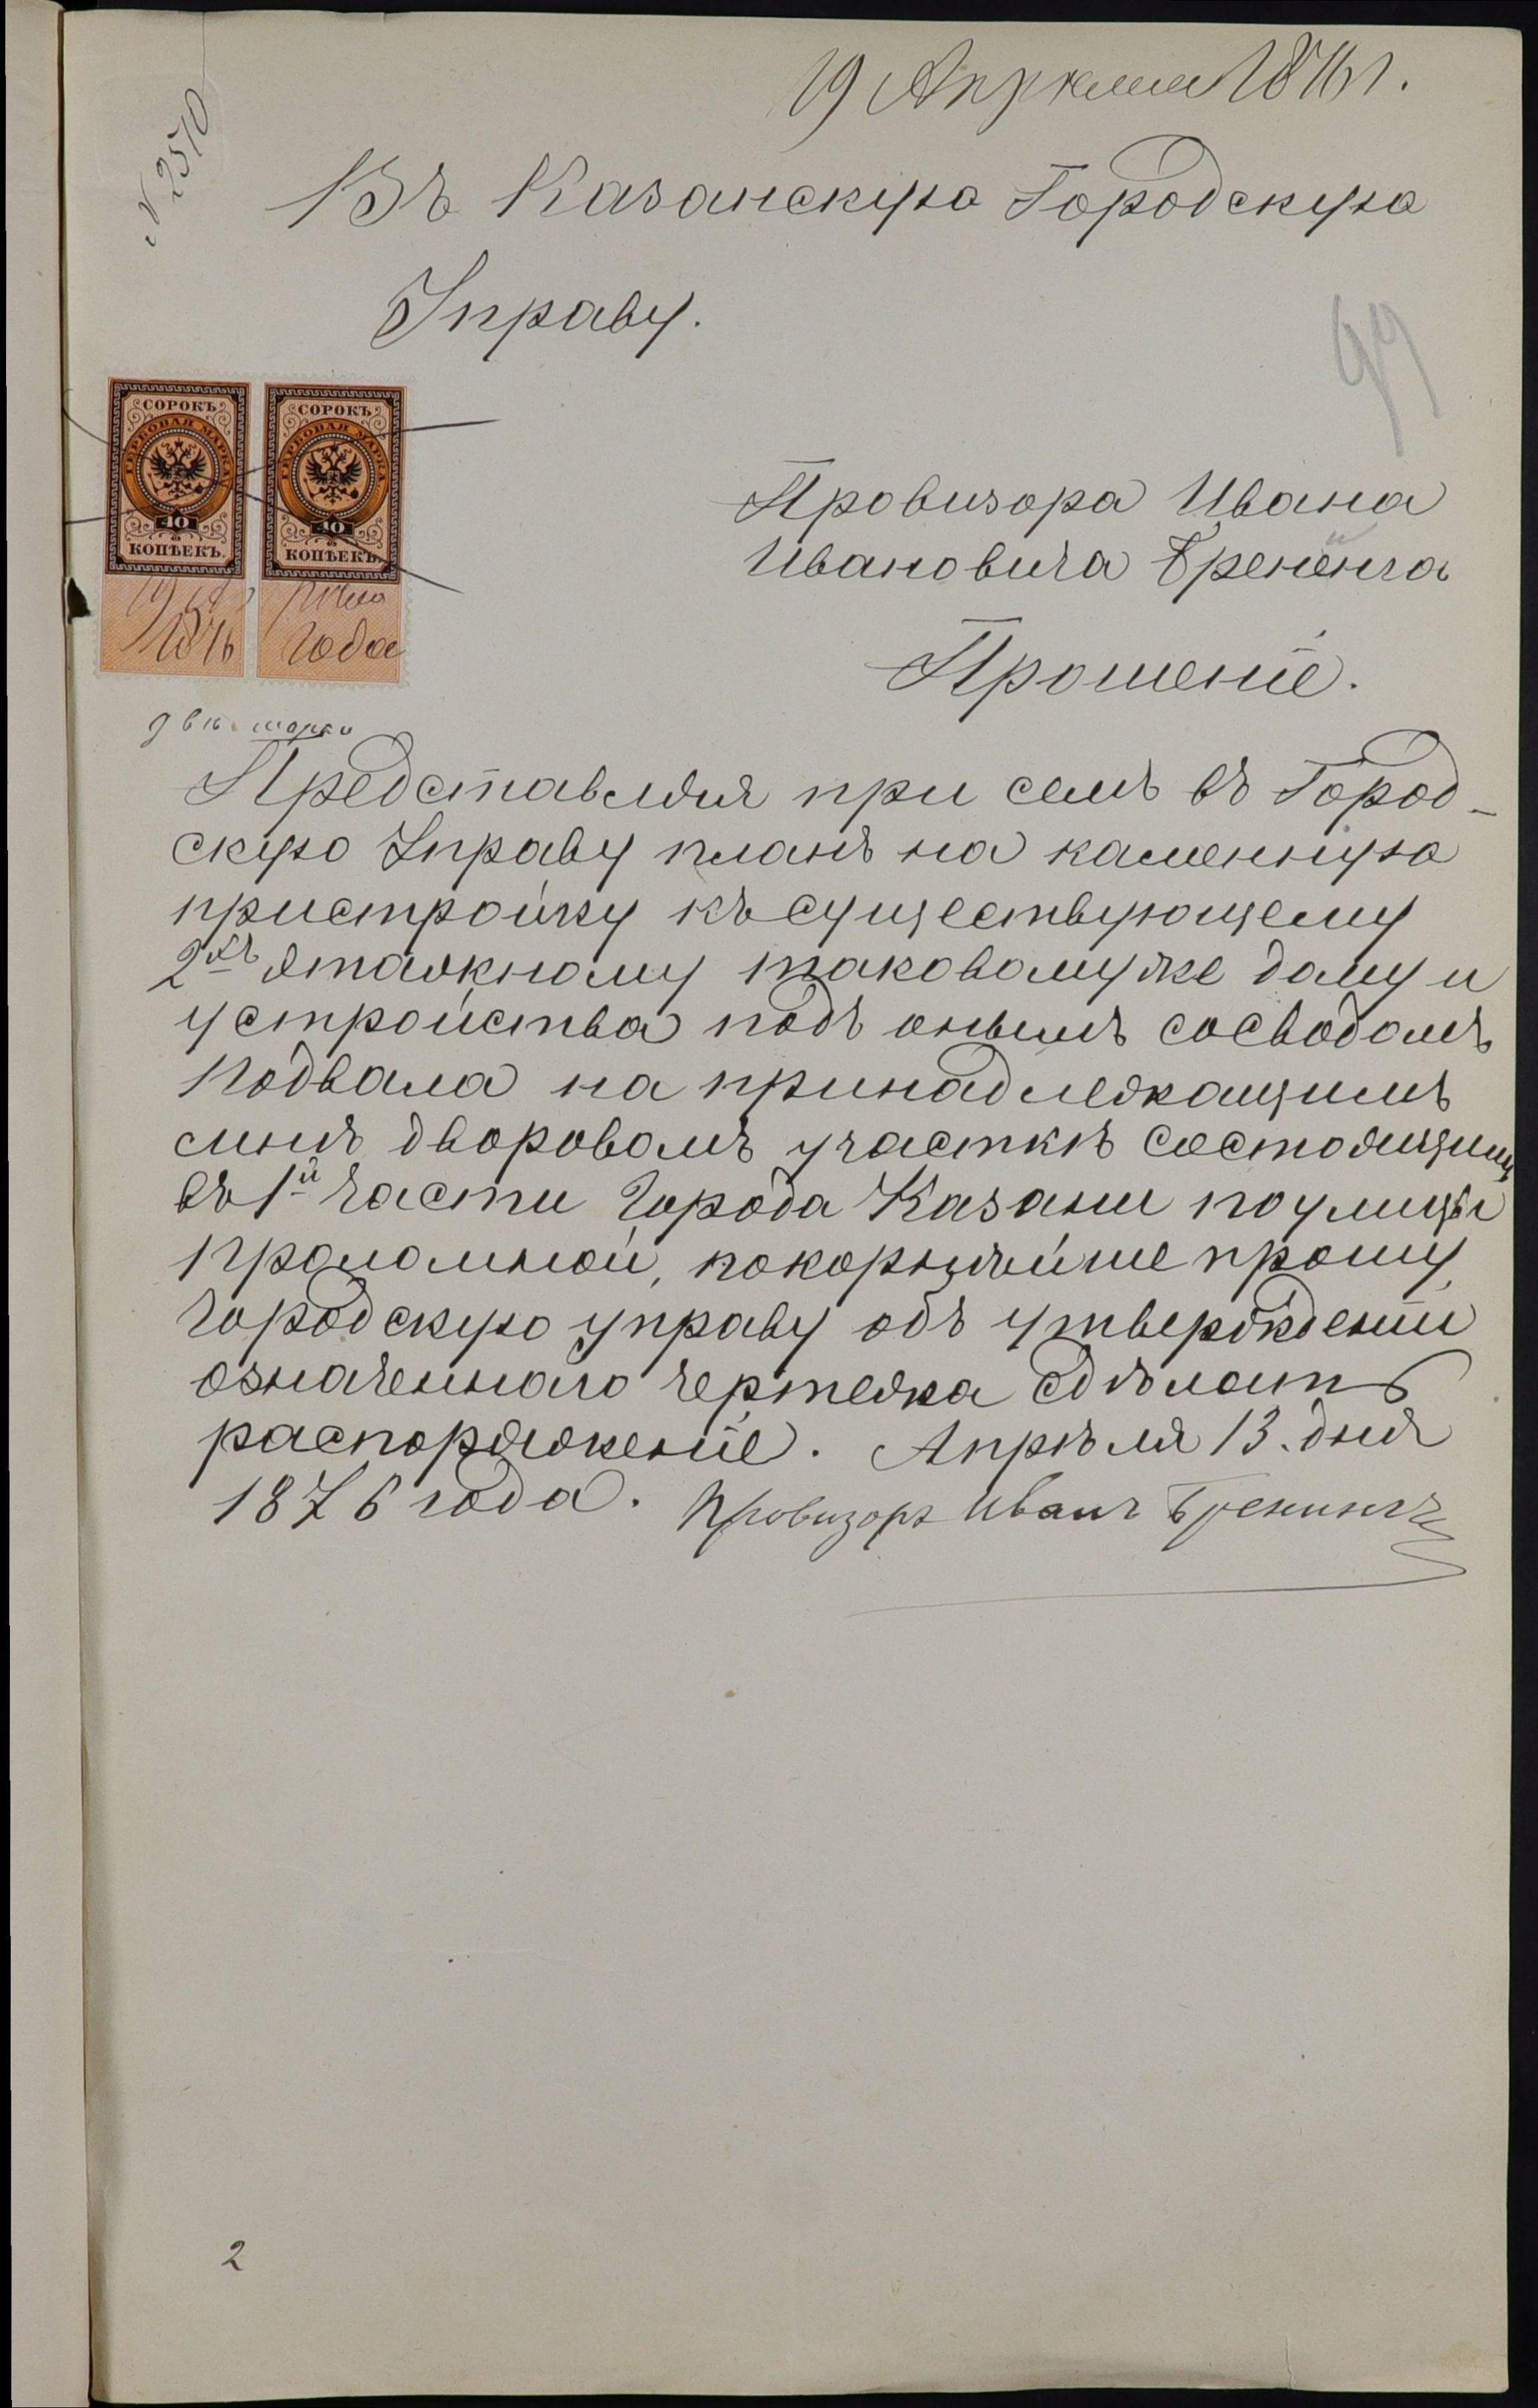 19 Апрѣля 1876 г.
№ 2510
Въ Казанскую Городскую
Управу.
99
СОРОКЪ СОРОКЪ
ГЕРБОВАЯ МАРКА ГЕРБОВАЯ МАРКА
40 40
КОПѢЕКЪ. КОПѢЕКЪ.
1876 года
двѣ марки
Провизора Ивана
Ивановича Бренинга
Прошеніе.
Представляя при семъ въ Город-
скую Управу планъ на каменную
пристройку къ существующему
2хъ этажному таковому же дому и
устройства подъ онымъ со сводомъ
подвала на принадлежащимъ
мнѣ дворовомъ участкѣ состоящимъ
въ 1й части города Казани по улицѣ
проломной, покорнѣйше прошу
городскую управу объ утвержденіи
означеннаго чертежа сдѣлать
распоряженіе. Апрѣля 13. дня
1876 года. Провизоръ Иванъ Бренингъ
2